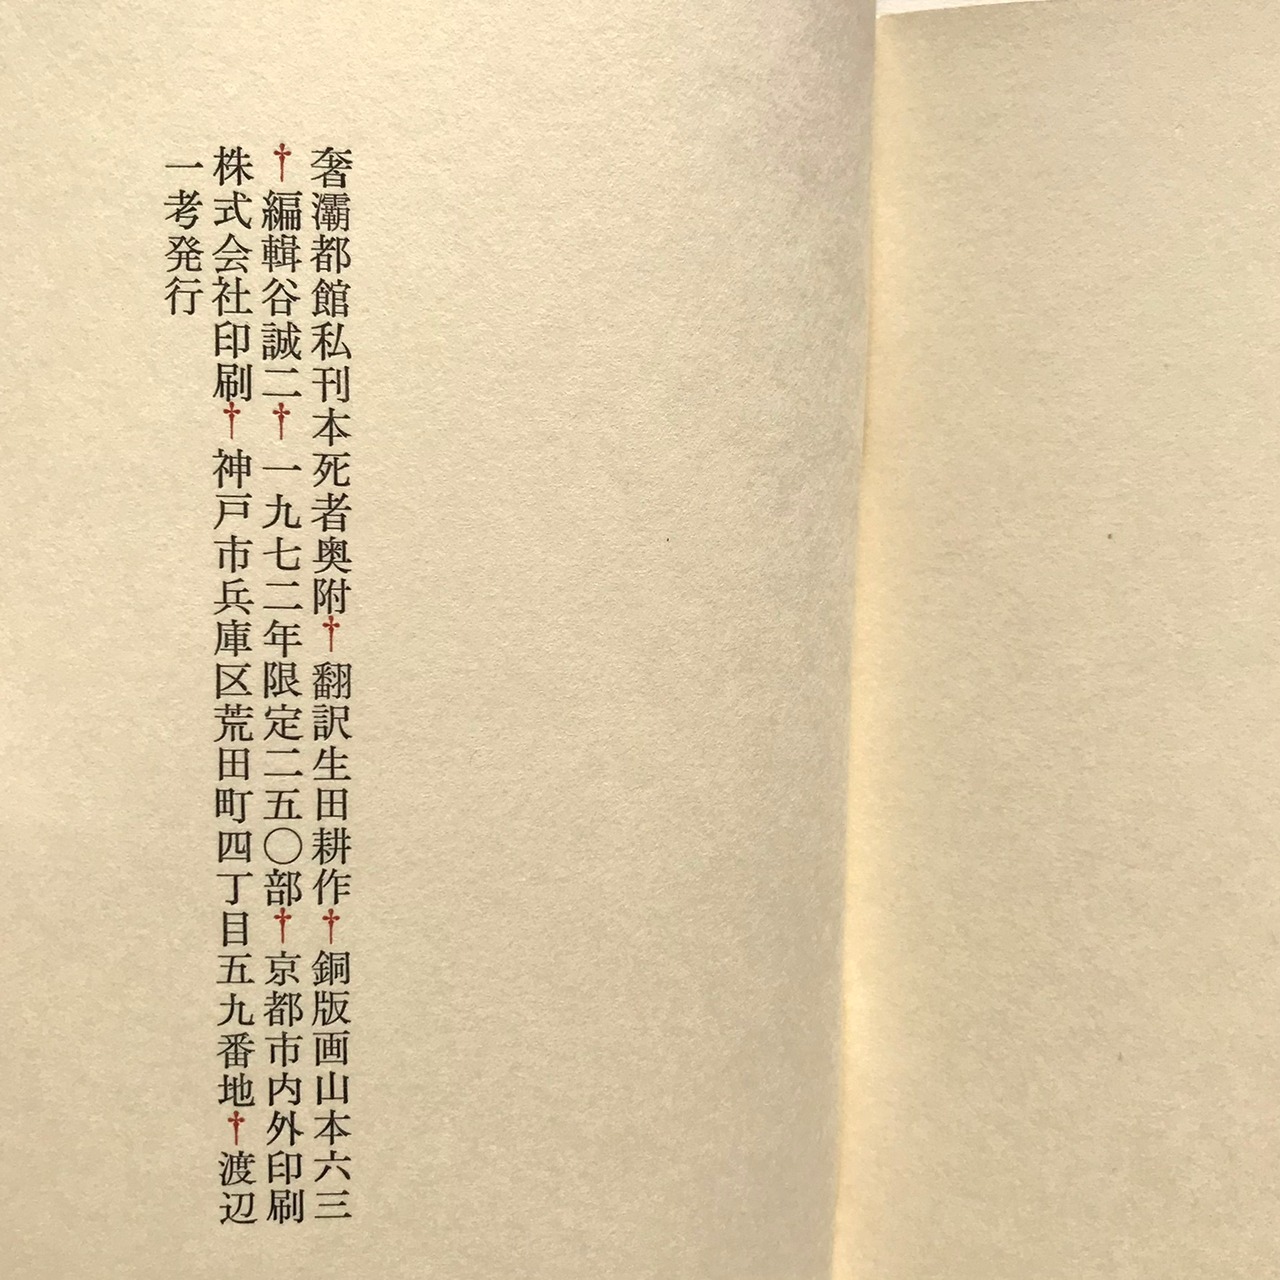 奢灞都館私刊本死者奥附†翻訳生田耕作†銅版画山本六三
†編輯谷誠二†一九七二年限定二五〇部†京都市内外印刷
株式会社印刷†神戸市兵庫区荒田町四丁目五九番地†渡辺
一考発行